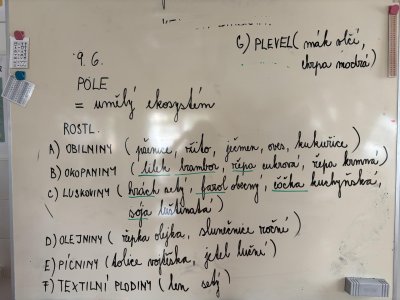 9. 6.
POLE
= umělý ekosystém
ROSTL.
A) OBILNINY (pšenice, žito, ječmen, oves, kukuřice)
B) OKOPANINY (lilek brambor, řepa cukrová, řepa krmná)
C) LUSKOVINY (hrách setý, fazol obecný, čočka kuchyňská,
sója luštinatá)
D) OLEJNINY (řepka olejka, slunečnice roční)
E) PÍCNINY (tolice vojtěška, jetel luční)
F) TEXTILNÍ PLODINY (len setý)
G) PLEVEL (mák vlčí,
chrpa modrá)